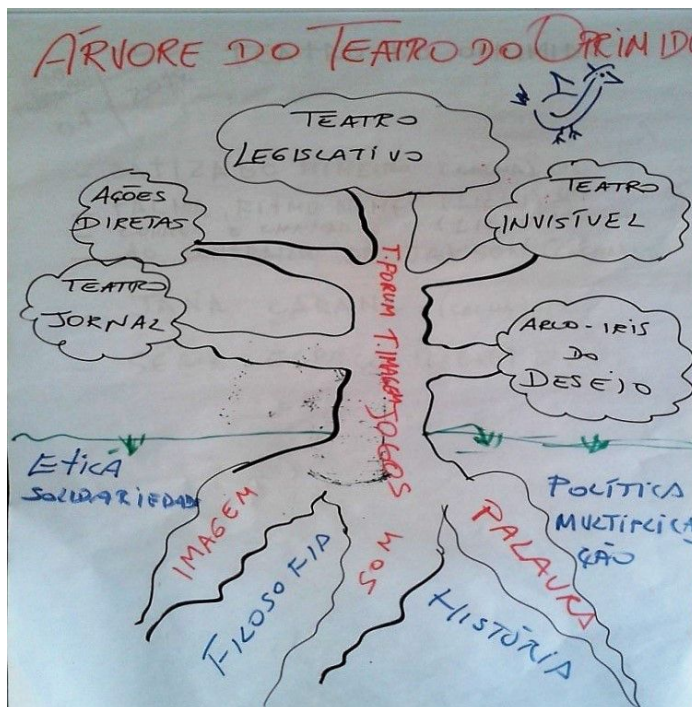 ÁRVORE DO TEATRO DO OPRIMIDO
TEATRO
LEGISLATIVO
AÇÕES
DIRETAS
TEATRO
INVISÍVEL
TEATRO
JORNAL
ARCO-IRIS
DO
DESEJO
T. FORUM T. IMAGEM JOGOS
ETICA
SOLIDARIEDAD
POLÍTICA
MULTIPLICA
ÇÃO
IMAGEM
FILOSOFIA
SOM
HISTÓRIA
PALAVRA